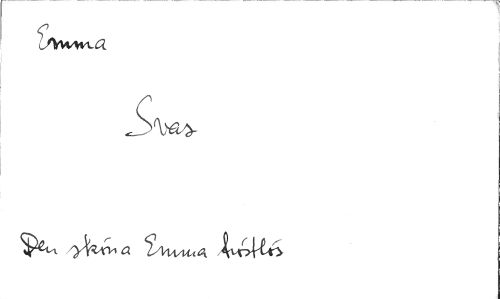 Emma
Svas
Den sköna Emma tröstlös